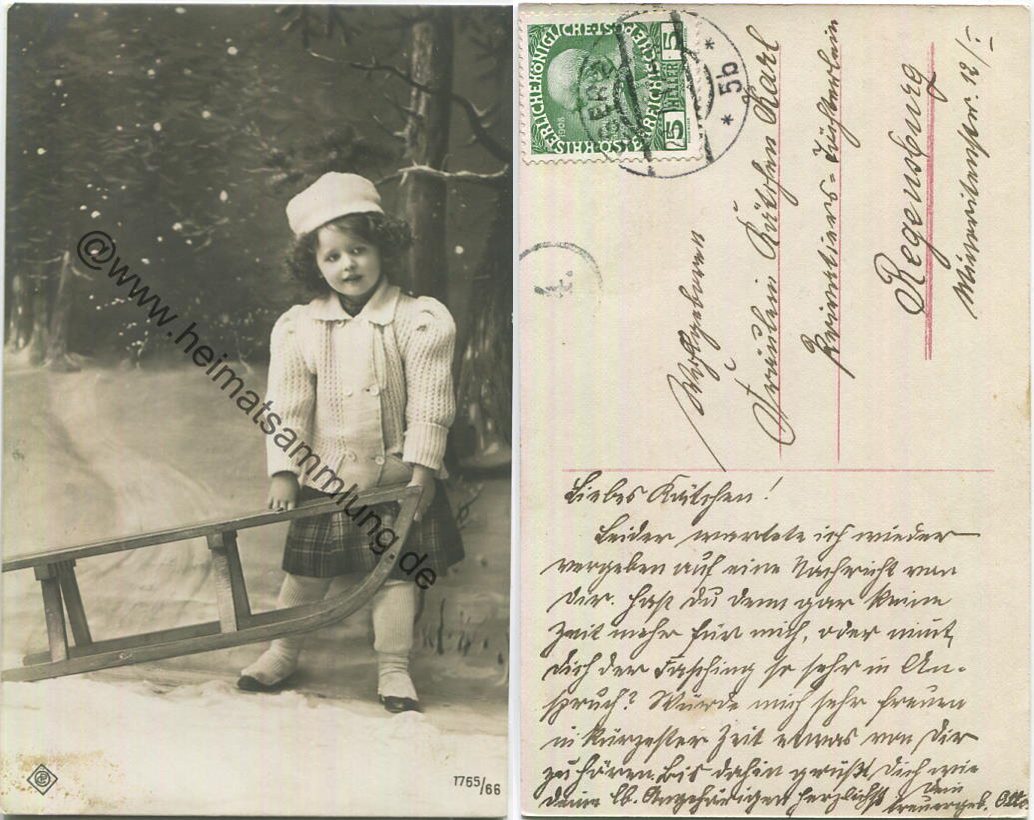 @www.heimatsammlung.de
1765/66
KAISERLICHE KÖNIGLICHE
ÖSTERREICHISCHE
5 HELLER 5
1908
* 5b *
Wohlgeboren
Fräulein Kätchen Karl
Regensburg
Minoritenstr. 12/I
Liebes Kätchen!
Leider wartete ich wieder
vergeben auf eine Nachricht von
Dir. Hast du denn gar keine
Zeit mehr für mich, oder nimt
Dich der Fasching so sehr in An-
spruch? Würde mich sehr freuen
in kürzester Zeit etwas von Dir
zu hören. Bis dahin grüßt Dich wie
Deine lb. Angehörigen herzlichst Dein
treuergeb. Otto.